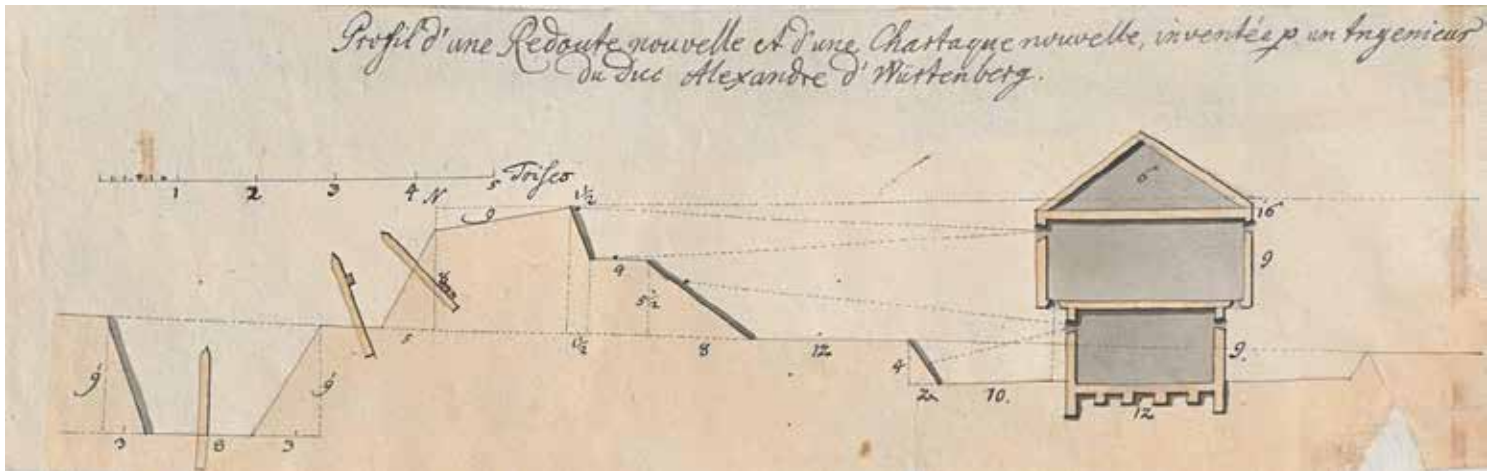 Profil d'une Redoute nouvelle et d'une Chartaque nouvelle, inventée p un Ingenieur
du Duc Alexandre d'Würtenberg.
1 2 3 4 5 Toises
N
9
1½
9
5½
5
1½
8
12
4
2½
10.
6
16
9
9.
12
9'
9'
3
8
3